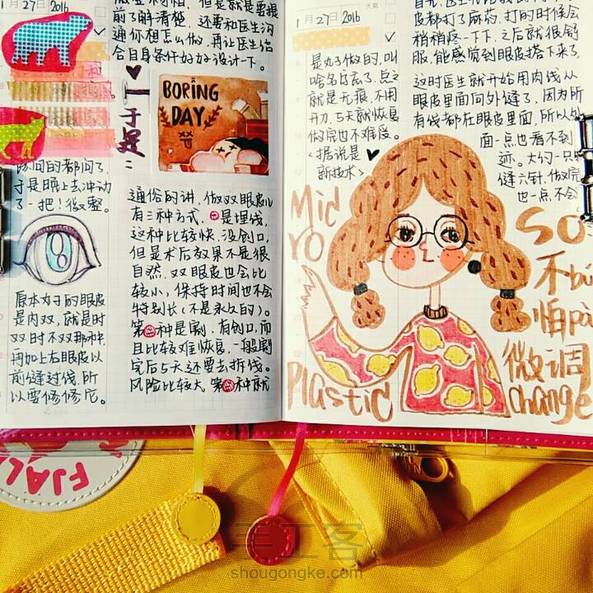 1 27 2016
前了解清楚,还要和医生沟
通你想怎么做,再让医生结
合自身条件好好设计一下。
BORING
DAY
于是:
陈问的都问了,
于是晚上去冲动
了一把!做整。
原本丸子的眼皮
是内双,就是时
双时不双那种,
再加上右眼皮以
前缝过线,所
以要修修它。
通俗的讲,做双眼皮儿
有三种方式,一是埋线,
这种比较快,没创口,
但是术后效果不是很
自然,双眼皮也会比
较小,保持时间也不会
特别长(不是永久的)。
第二种是割,有创口,而
且比较难恢复,一般割
完后5天还要去拆线。
风险比较大。第三种就
1 27 2016
是丸子做的,叫
啥名忘了,反正
就是无痕,不用
开刀,5天就恢复
做完也不难受。
<据说是
新技术>
皮都打了麻药,打的时候会
稍稍疼一下下,之后就很舒
服,能感觉到眼皮搭下来了
这时医生就开始用肉线从
眼皮里面向外缝了,因为所
有线都在眼皮里面,所以外
面一点也看不到
迹。大约一只眼
缝六针,做完
也一点不会
Micro
Plastic
So
不bú
怕pà
微调
change
FJÄLL
手工客
shougongke.com